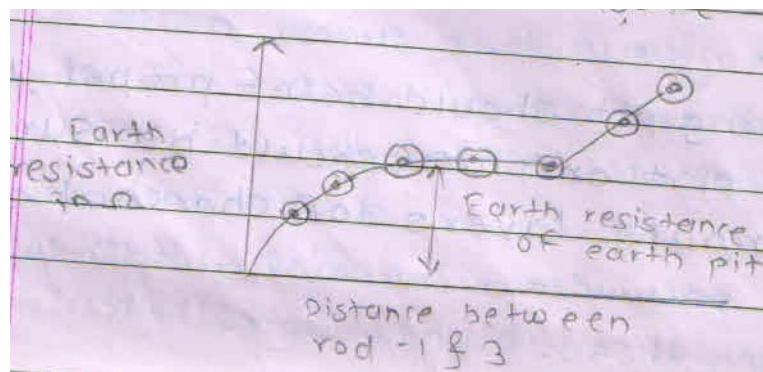 Earth
resistance
in Ω
Earth resistance
of earth pit
Distance between
rod -1 & 3